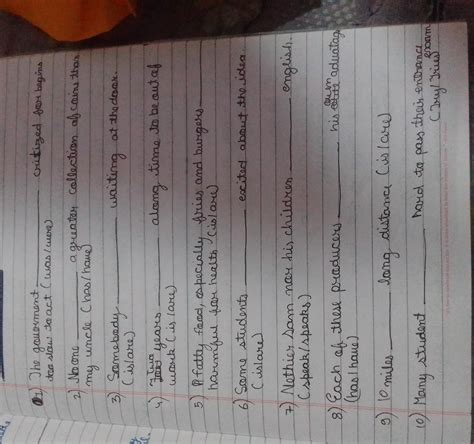 1) The goverment ______ critized for begins
too slow to act (was/were)
2) No one ______ a greater collection of coins than
my uncle (has/have)
3) Somebody ______ waiting at the door.
(is/are)
4) Two years ______ along time to be out of
work (is/are)
5) Fatty food, especially fries and burgers ______
harmful for health (is/are)
6) Some students ______ excited about the idea
(is/are)
7) Neithier Sam nor his children ______ english.
(speak/speaks)
8) Each of these producers ______ his own advatag
(has/have)
9) 10 miles ______ long distance (is/are)
10) Many student ______ hard to pass their entrance
exam
(try/tries)